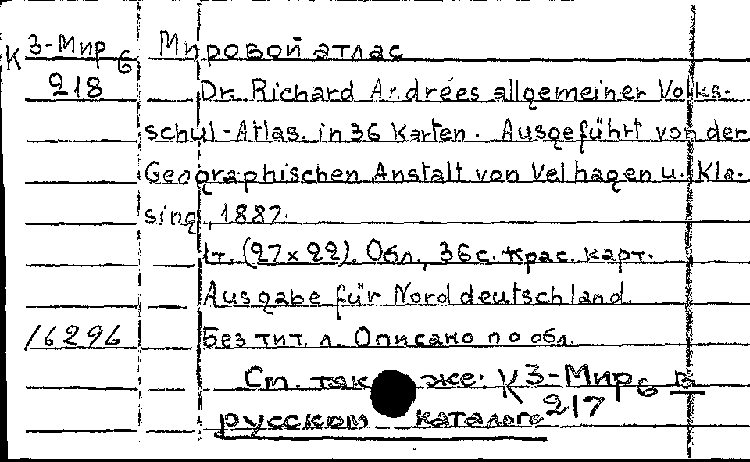 К 3-Мир 6 Мировой атлас
218 Dr. Richard Andrées allgemeiner Volks-
schul-Atlas. in 36 Karten. Ausgeführt von der
Geographischen Anstalt von Velhagen u. Kla-
sing, 1887.
1т. (27 x 22). Обл., 36 с. крас. карт.
Ausgabe für Norddeutschland
16296 Без тит. л. Описано по обл.
См. также: К 3-Мир 6 в
217
русском каталоге